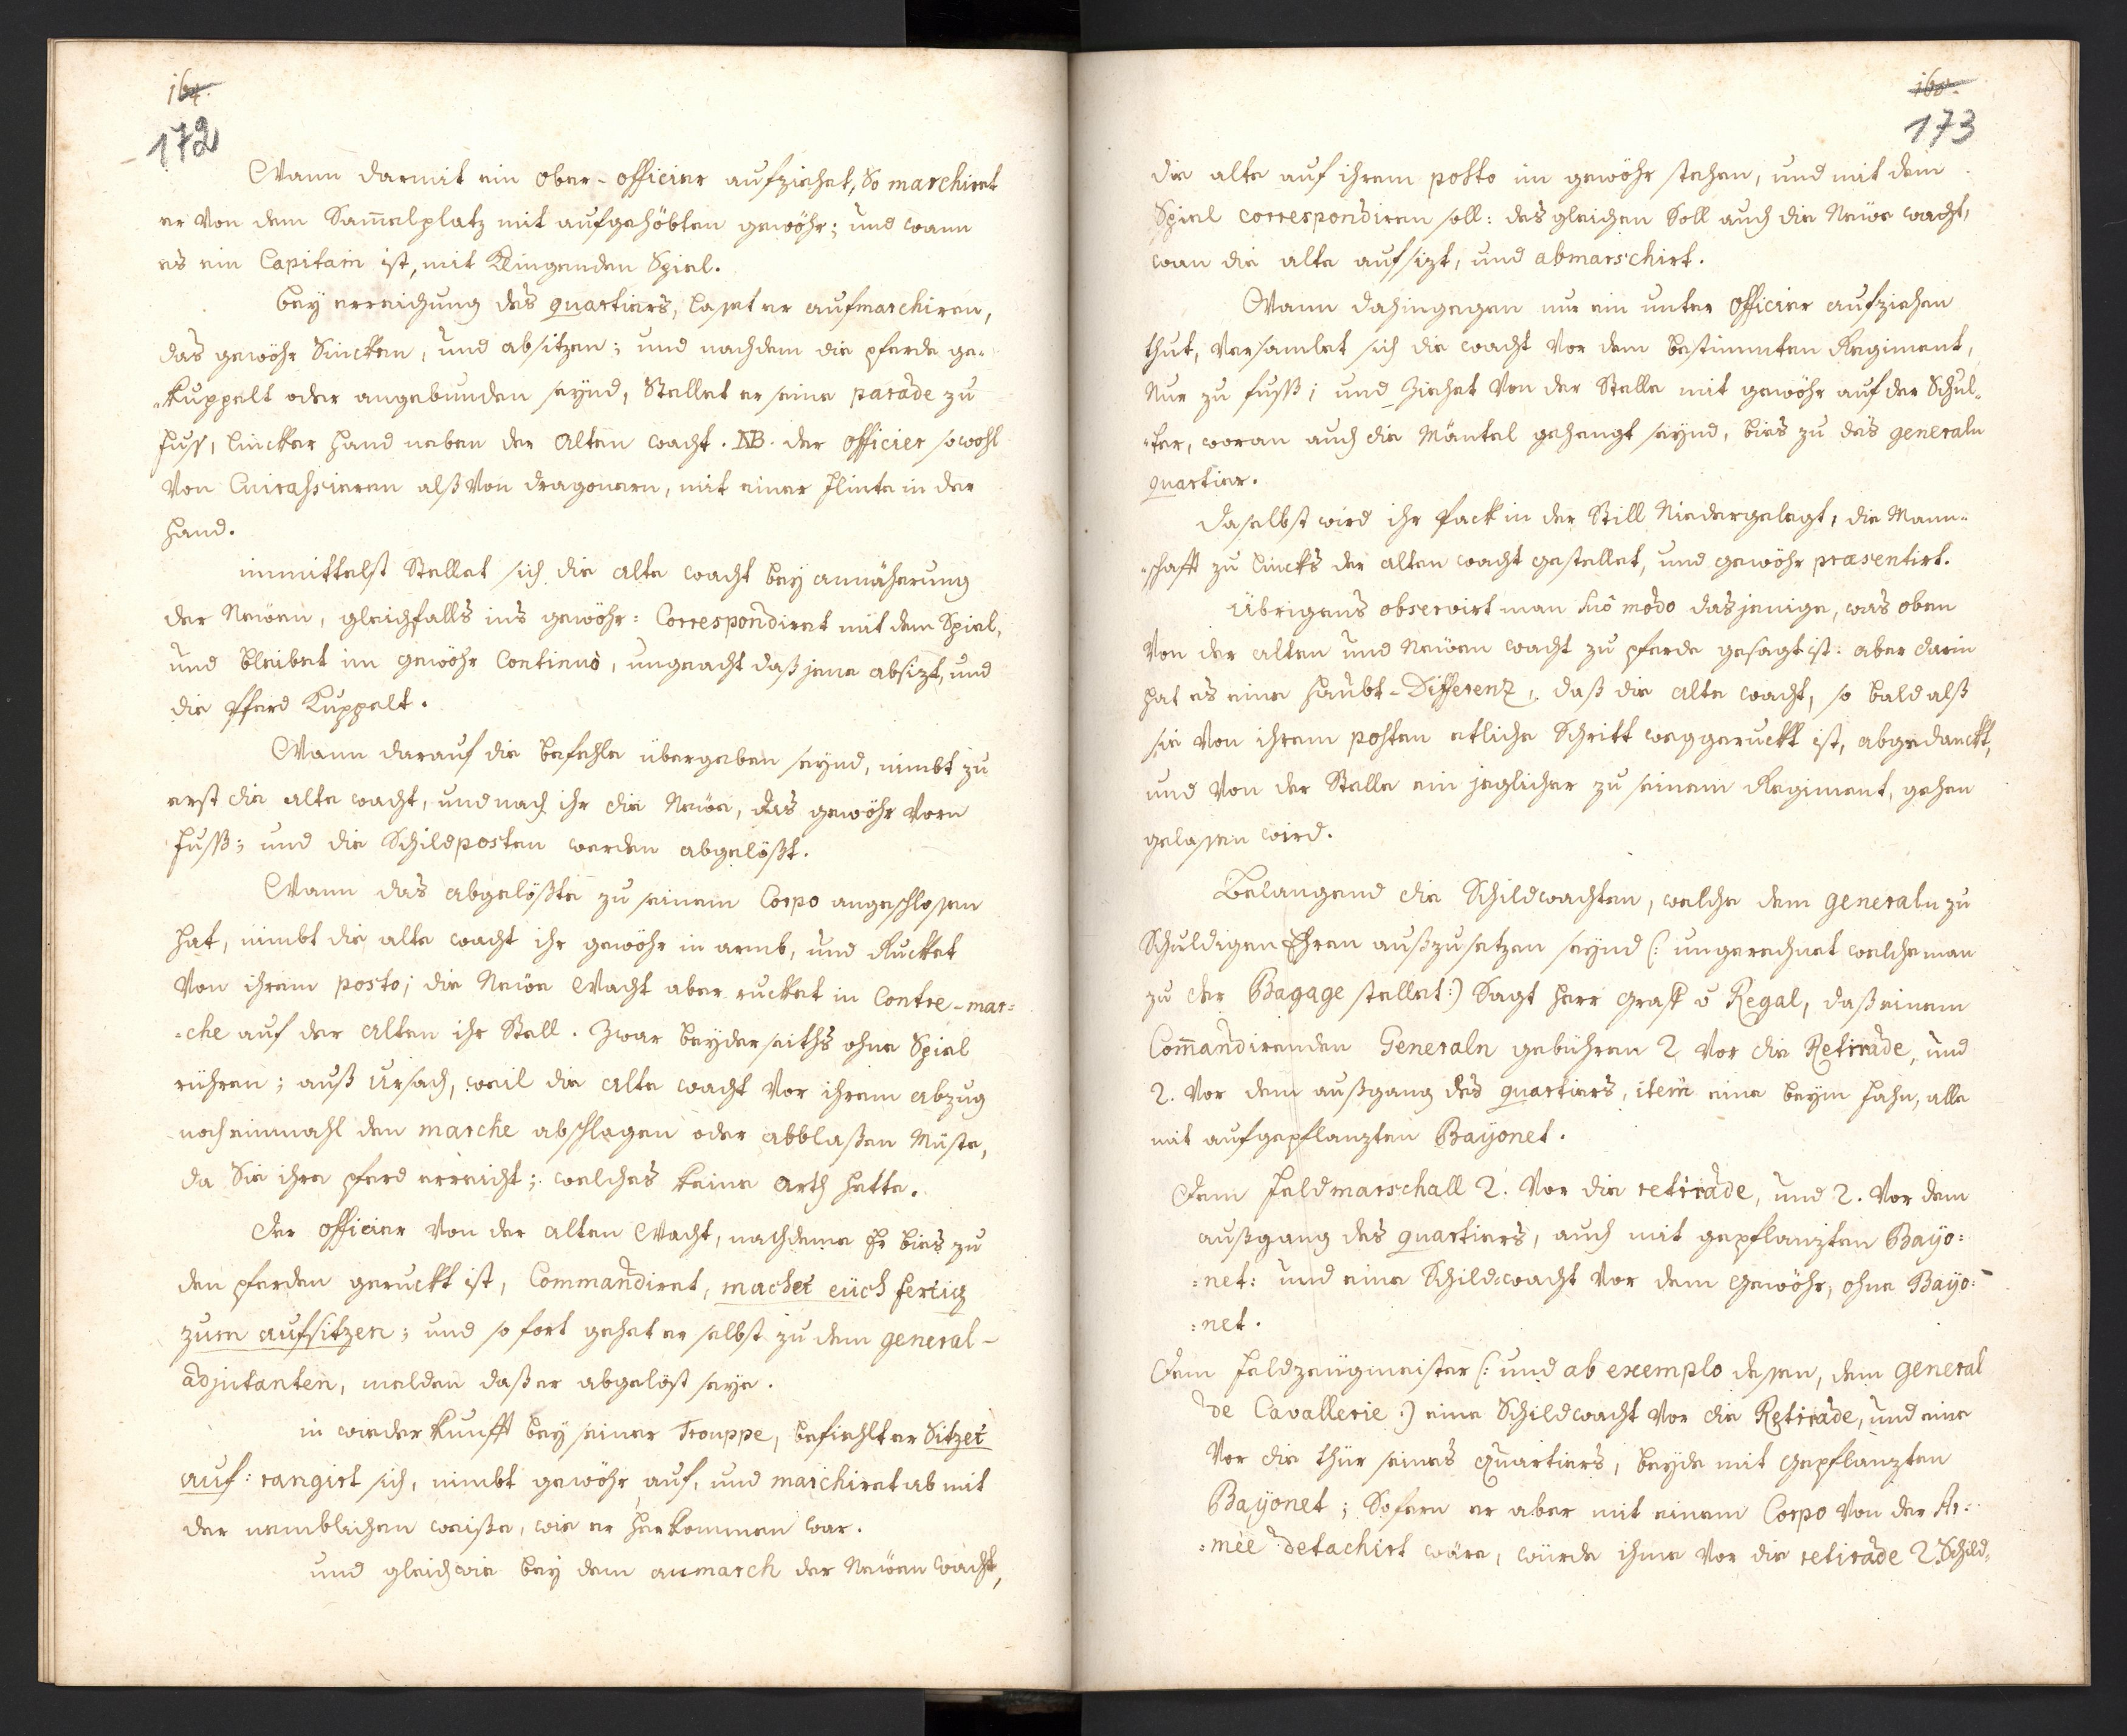 172
Wann darmit ein ober-officier aufziehet, So marchiret
er von dem Sam̄elplatz mit aufgehöbten gewöhr; und wann
es ein Capitain ist, mit Klingenden Spiel.
bey erreichung des quartiers, lasset er aufmarchiren,
das gewöhr Sincken, und absitzen; und nachdem die pferde ge-
-kuppelt oder angebunden seynd, Stellet er seine parade zu
fuss, lincker hand neben der Alten wacht. NB. der officier sowohl
von Cuirassieren alß von dragonern, mit einer flinte in der
hand.
immittelst Stellet sich die alte wacht bey annäherung
der Neüen, gleichfalls ins gewöhr: Correspondiret mit dem Spiel,
und bleibet im gewöhr Continuò, ungeacht daß jene absizt, und
die Pferd Kuppelt.
Wann darauf die befehle übergeben seynd, nimbt zu
erst die alte wacht, und nach ihr die Neüe, das gewöhr vorn
fuß; und die Schildposten werden abgelößt.
Wann das abgelößte zu seinem Corpo angeschlossen
hat, nimbt die alte wacht ihr gewöhr in armb, und Rucket
von ihrem posto; die Neüe Wacht aber rucket in Contre-mar=
=che auf der Alten ihr Stell. Zwar beyderseiths ohne Spiel
rühren; auß Ursach, weil die alte wacht vor ihrem abzug
noch einmahl den marche abschlagen oder abblaßen Müste,
da Sie ihre pferd erreicht; welches keine arth hette.
der officier von der alten Wacht, nachdeme Er bies zu
den pferden geruckt ist, Commandiret, machet eüch fertig
zum aufsitzen; und so fort gehet er selbst zu dem general-
adjutanten, melden daß er abgelöst seye.
in wieder kunfft bey seiner Trouppe, befiehlt er Sitzet
auf: rangirt sich, nimbt gewöhr auf, und marchiret ab mit
der nemblichen weiße, wie er herkommen war.
und gleichwie bey dem anmarch der Neüen wacht,
173
die alte auf ihrem posto im gewöhr stehen, und mit dem
Spiel correspondiren soll: desgleichen Soll auch die Neüe wacht,
wan die alte aufsizt, und abmarschirt.
Wann dahingegen nur ein unter officier aufziehen
thut, versamlet sich die wacht vor dem bestimmten Regiment,
Nur zu fuß; und Ziehet von der Stelle mit gewöhr auf der Schul-
-ter, woran auch die Mäntel gehengt seynd, bies zu des generaln
quartier.
daselbst wird ihr pack in der Still Niedergelegt, die Mann-
-schafft zu lincks der alten wacht gestellet, und gewöhr præsentirt.
Übrigens observirt man suò modo dasjenige, was oben
von der alten und Neüen wacht zu pferde gesagt ist: aber darin
hat es eine haubt-Differenz, daß die alte wacht, so bald alß
sie von ihrem posten etliche Schritt weggeruckt ist, abgedanckt,
und von der Stelle ein jeglicher zu seinem Regiment, gehen
gelassen wird.
Belangend die Schildwachten, welche dem generaln zu
Schuldigen Ehren außzusetzen seynd (: ungerechnet welche man
zu der Bagage stellet:) Sagt herr graff v Regal, daß einem
Com̄andirenden Generaln gebühren 2 vor die Retirade, und
2. vor dem außgang des quartiers, item eine beym fahn, alle
mit aufgepflanzten Bayonet.
Dem feldmarschall 2. vor die retirade, und 2. vor dem
außgang des quartiers, auch mit gepflanzten Bayo=
=net: und eine Schildwacht vor dem gewöhr, ohne Bayo=
=net.
Dem feldzeügmeister (: und ab exemplo dessen, dem general
de Cavallerie :) eine Schildwacht vor die Retirade, und eine
vor die thür seines Quartiers, beyde mit gepflanzten
Bayonet; Sofern er aber mit einem Corpo von der Ar=
=mée detachirt wäre, würde ihme vor die retirade 2 Schild-